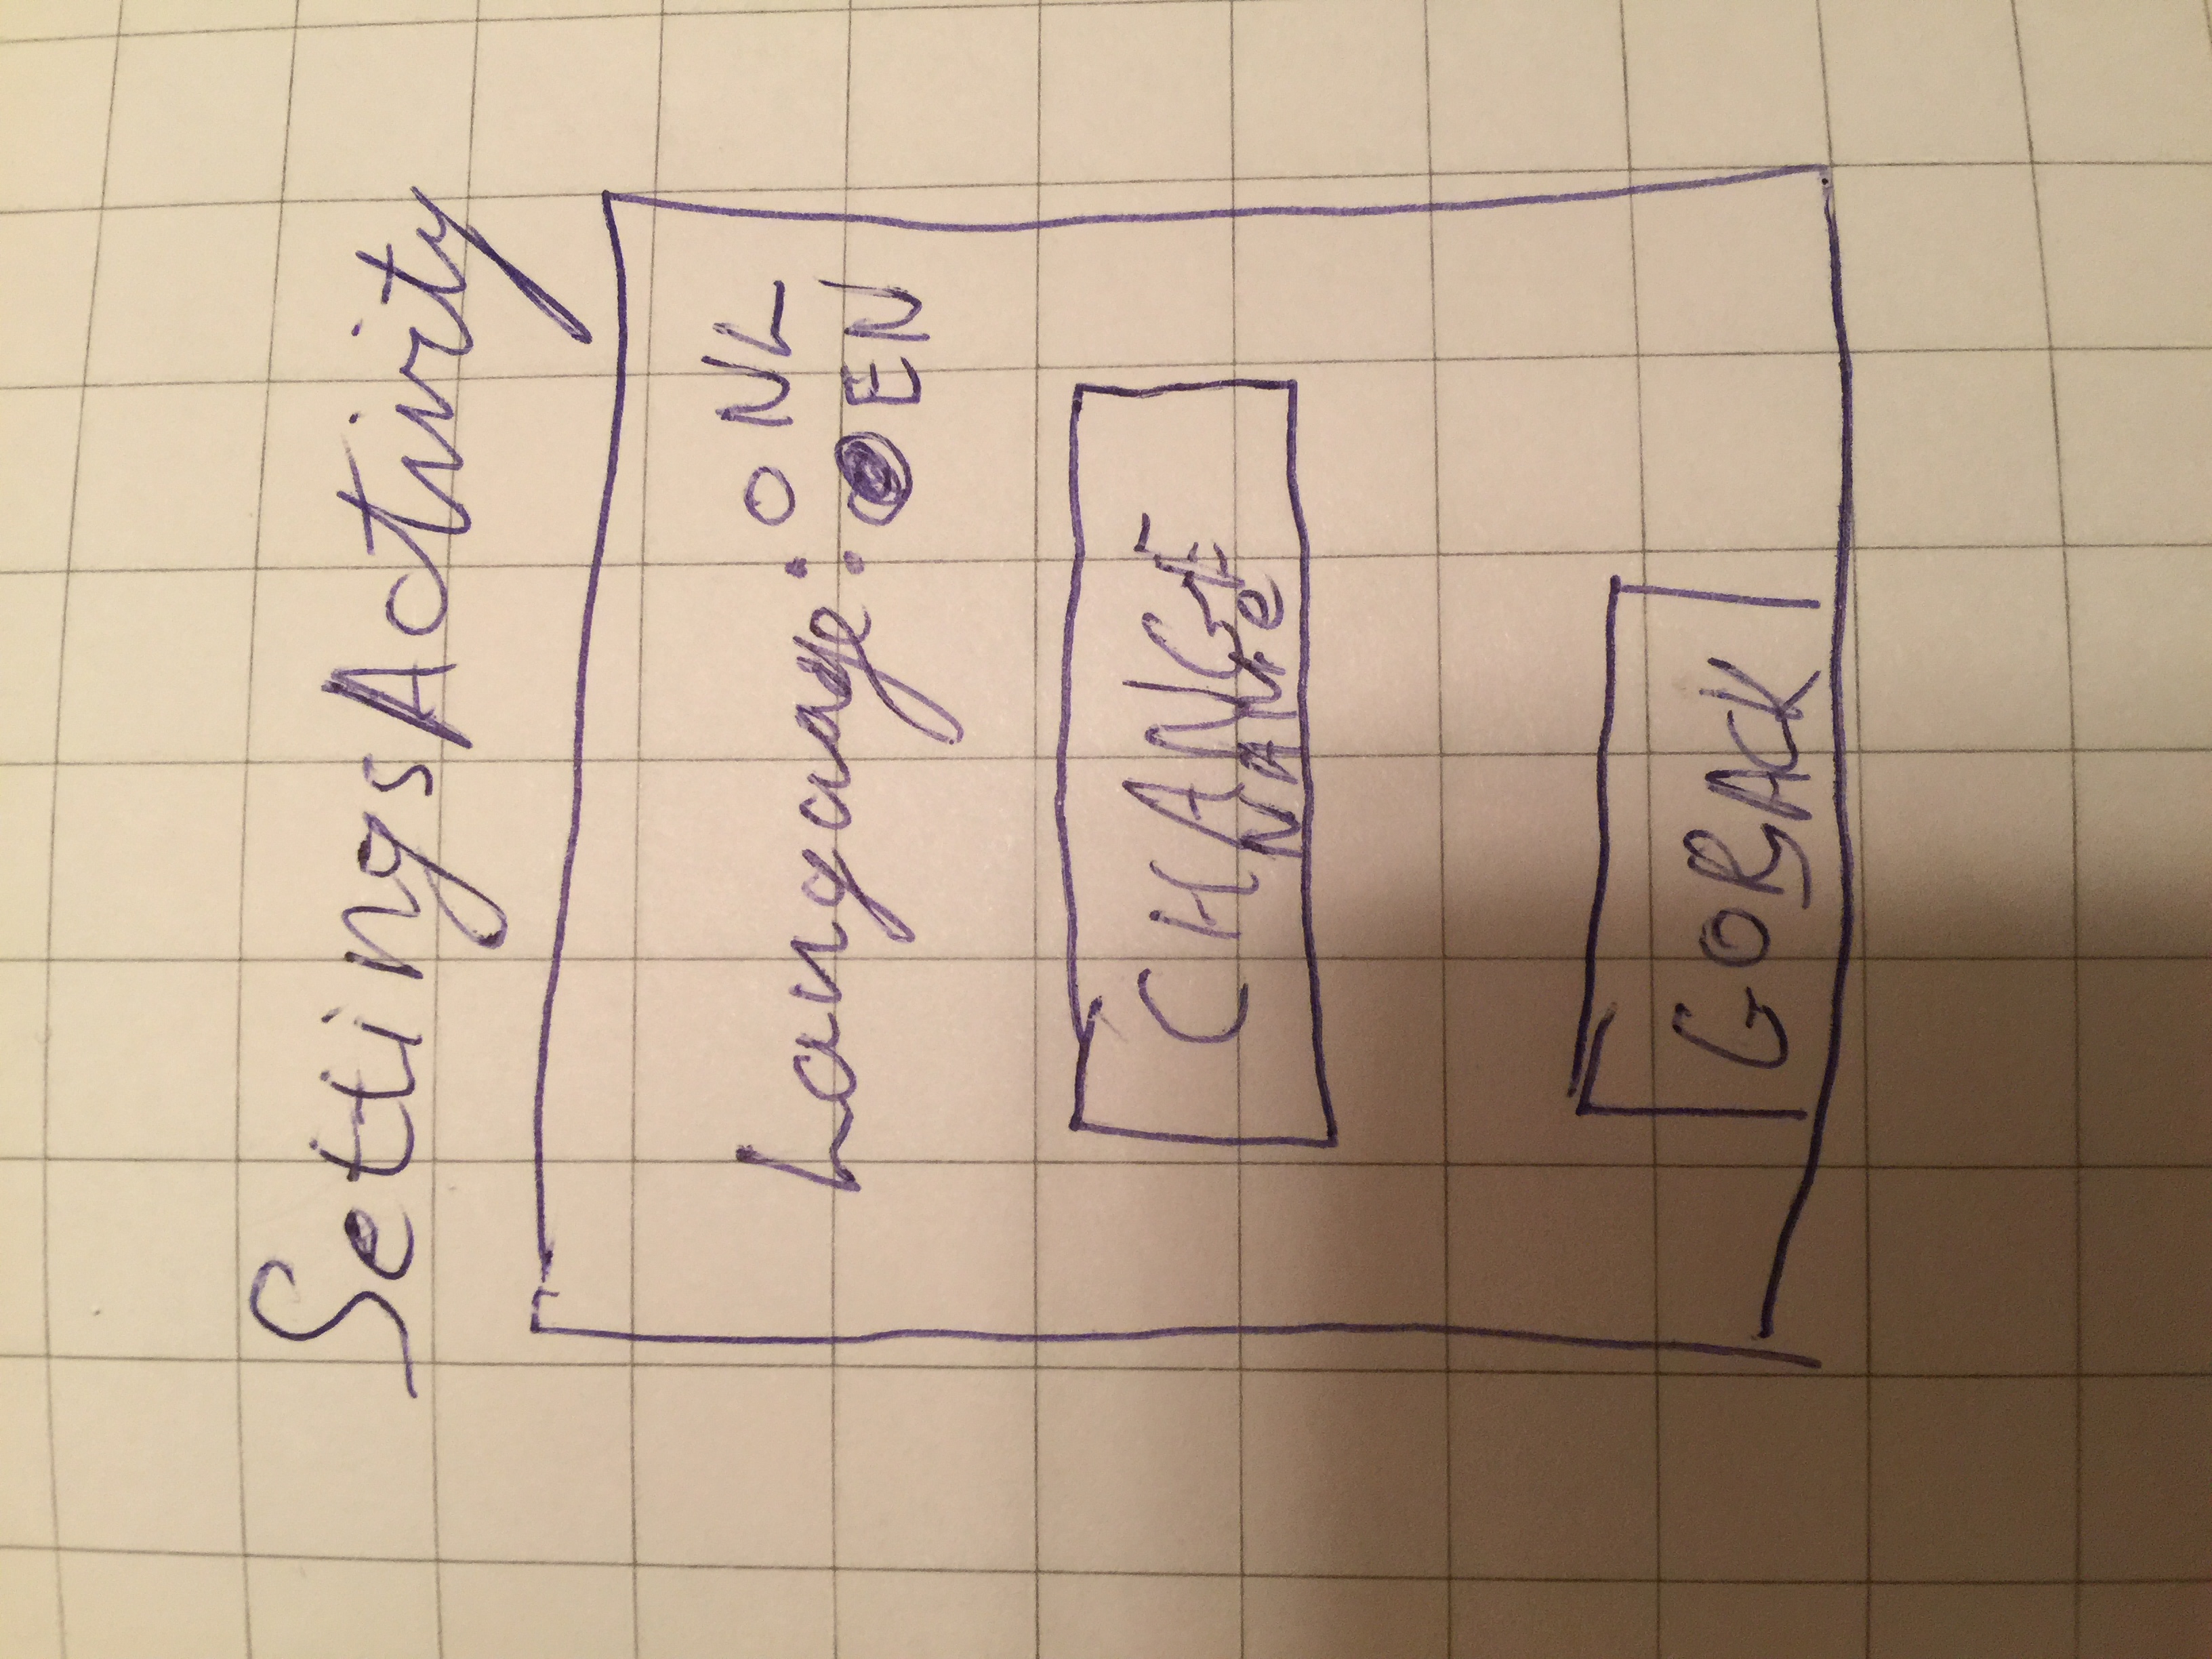 SettingsActivity
Language: NL
EN
CHANGE
NAMe
GOBACK